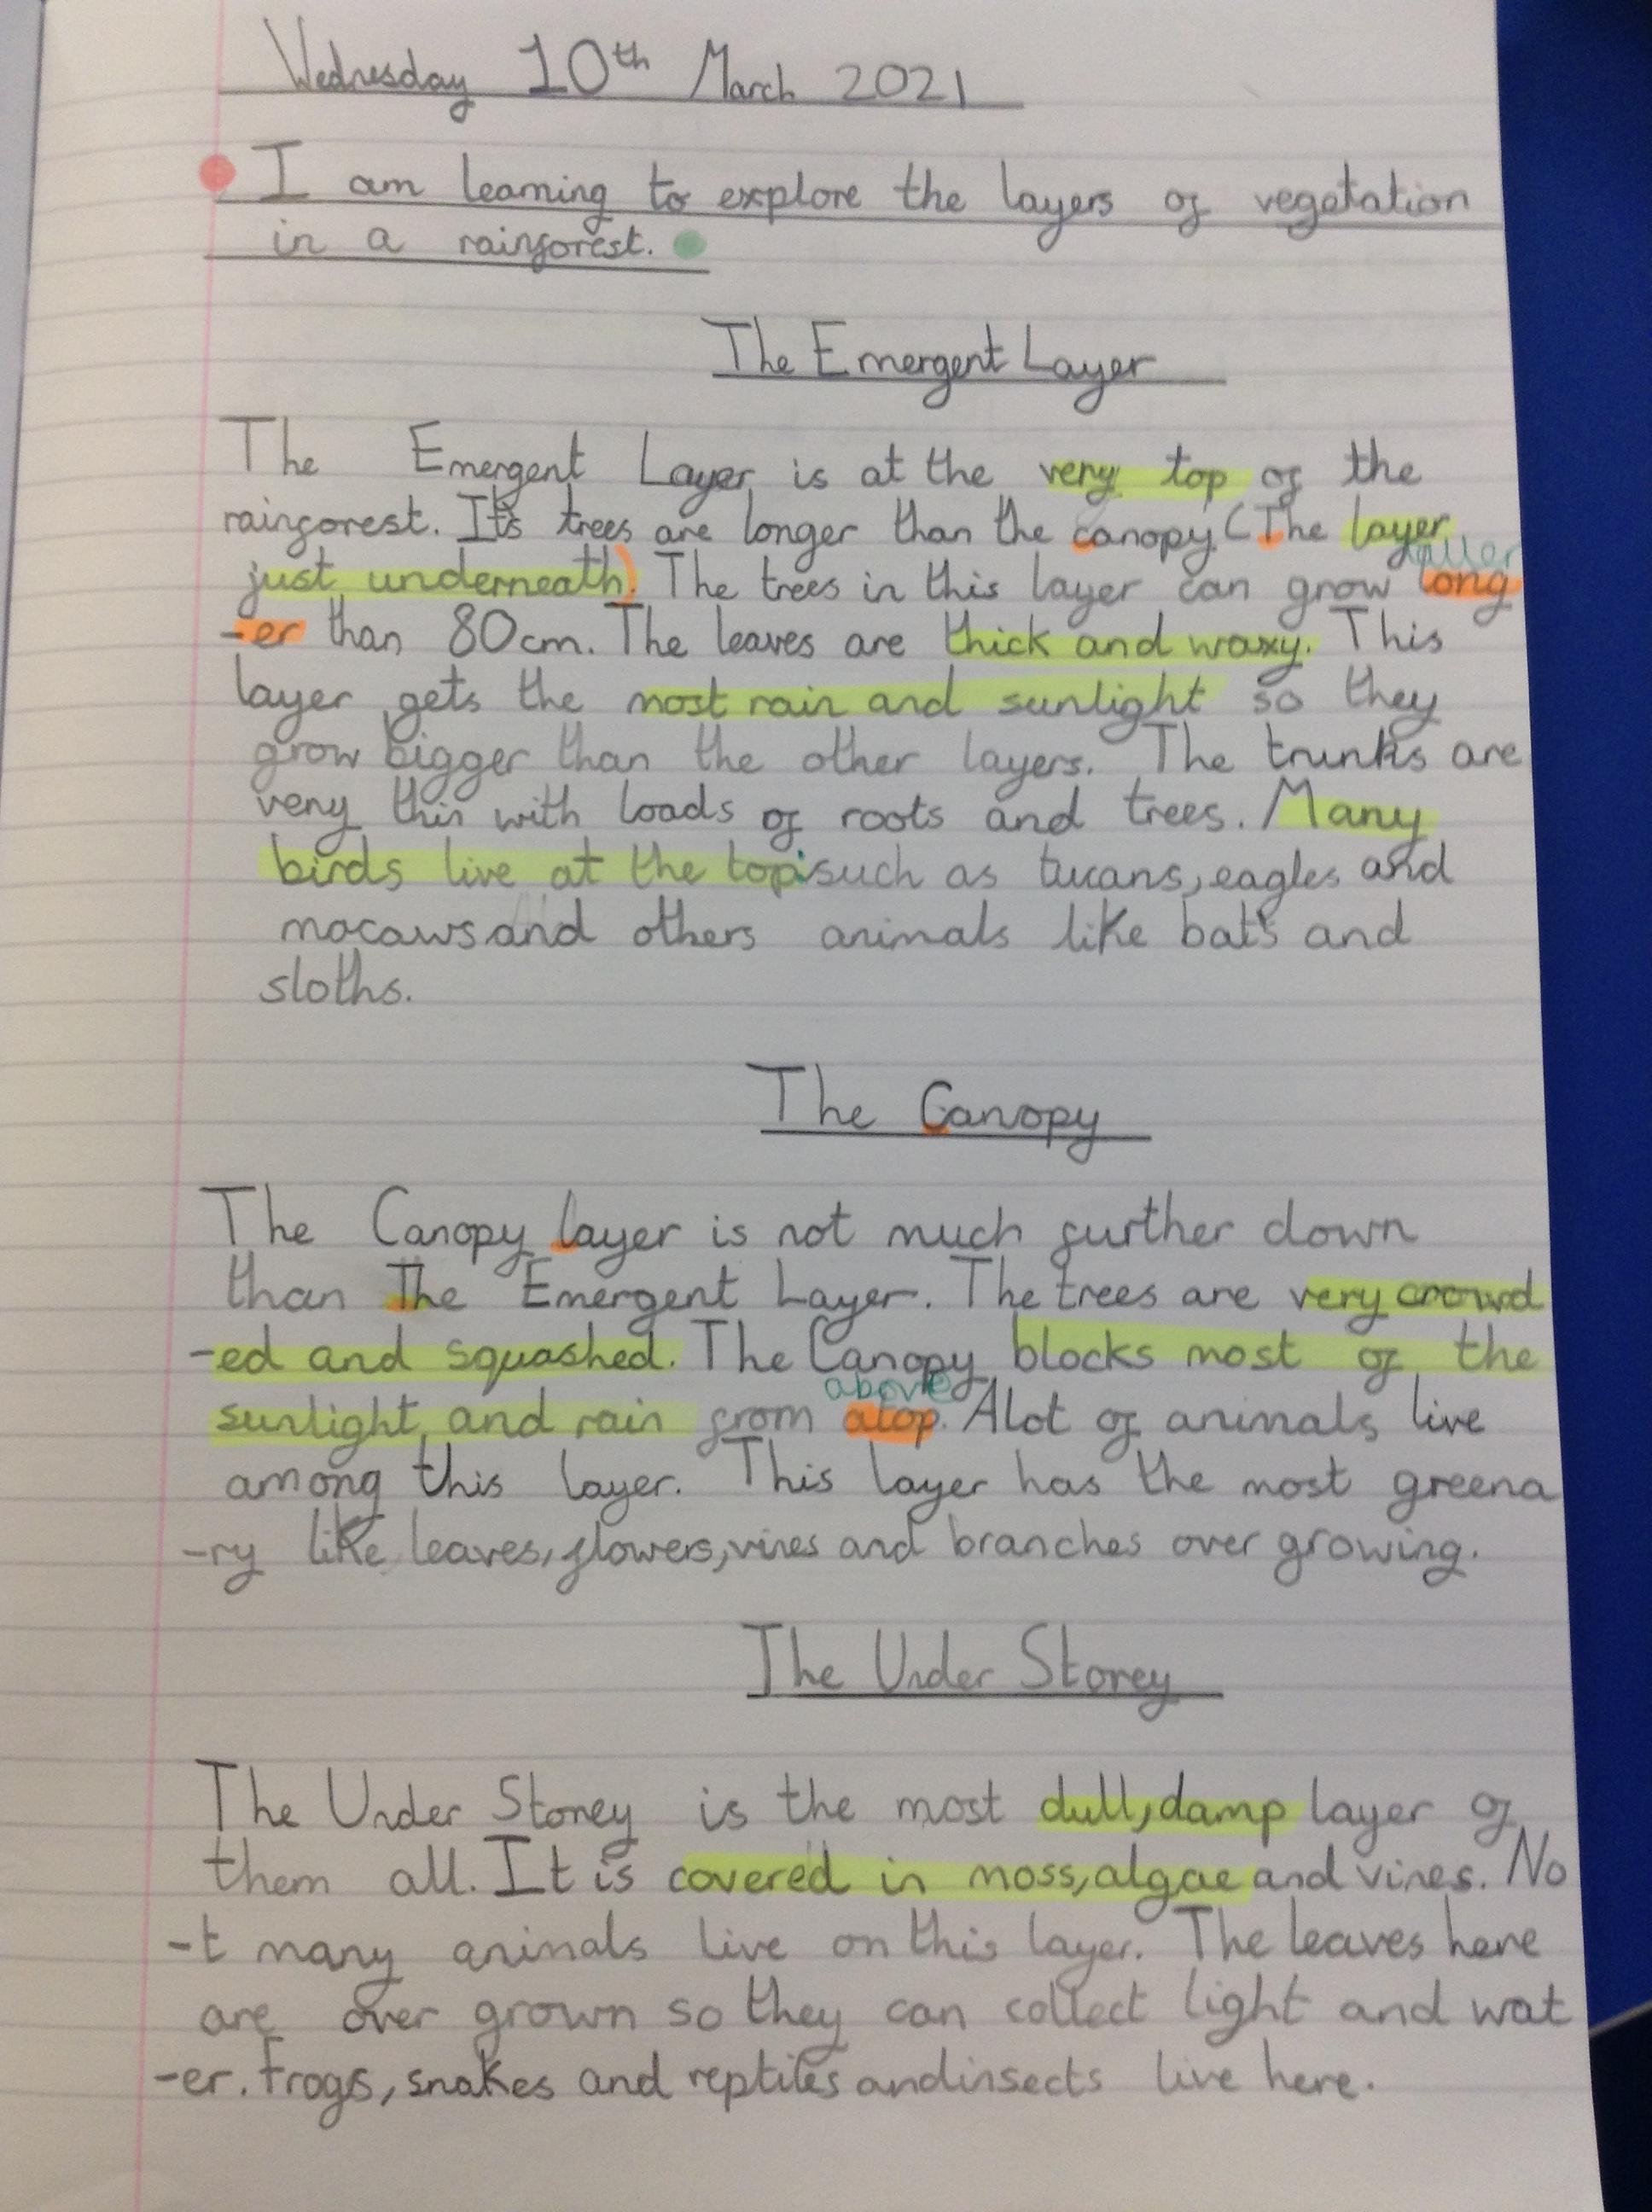 Wednesday 10th March 2021
I am learning to explore the layers of vegetation
in a rainforest.
The Emergent Layer
The Emergent Layer is at the very top of the
rainforest. It's trees are longer than the canopy (The layer
taller
just underneath). The trees in this layer can grow long
-er than 80cm. The leaves are thick and waxy. This
layer gets the most rain and sunlight so they
grow bigger than the other layers. The trunks are
very thin with loads of roots and trees. Many
birds live at the top such as tucans, eagles and
macaws and others animals like bats and
sloths.
The Canopy
The Canopy layer is not much further down
than The Emergent Layer. The trees are very crowd
-ed and squashed. The Canopy blocks most of the
above
sunlight and rain from atop. Alot of animals live
among this layer. This layer has the most greena
-ry like leaves, flowers, vines and branches over growing.
The Under Storey
The Under Storey is the most dull, damp layer of
them all. It is covered in moss, algae and vines. No
-t many animals live on this layer. The leaves here
are over grown so they can collect light and wat
-er. Frogs, snakes and reptiles and insects live here.